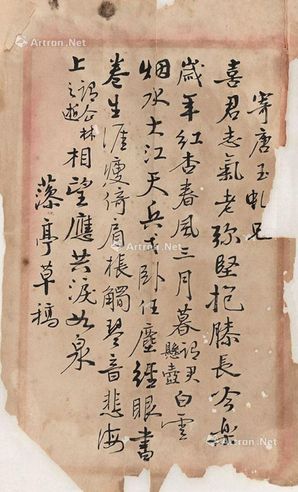 寄唐玉虬兄
喜君志氣老弥堅抱膝長吟樂
歲年紅杏春風三月暮謂君懸壺白雲
烟水大江天兵卧任塵經眼書
卷生涯瘦倚肩棖觸琴音悲海
上謂公林之逝相望應共淚如泉
藻亭草稿
Artron.Net
Artron.Net
Artron.Net
Artron.Net